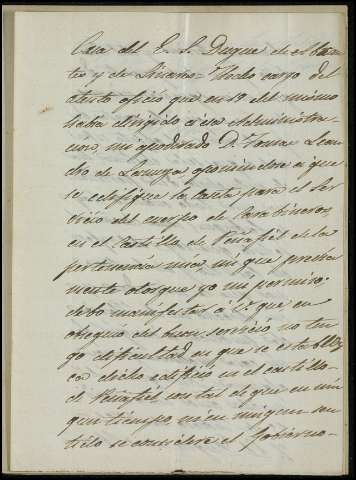 Casa del E. S. Duque de el
y de Hecho cargo del
atento oficio que en 19 del mismo
había dirigido a esa Administra-
ción, mi apoderado D. Tomas Lean-
dro de oponiendose a que
se edifique la caseta para el Ser
vicio del cuerpo de Carabineros,
en el Castillo de Peñafiel de la
pertenencia mia sin que previa
mente otorgue yo mi permiso;
debo manifestar á V. que en
obsequio del buen servicio no ten
go dificultad en que se establez
ca dicho edificio en el castillo
de Peñafiel con tal de que en nin
gun tiempo, ni en ningun con
cepto se considere el Gobierno